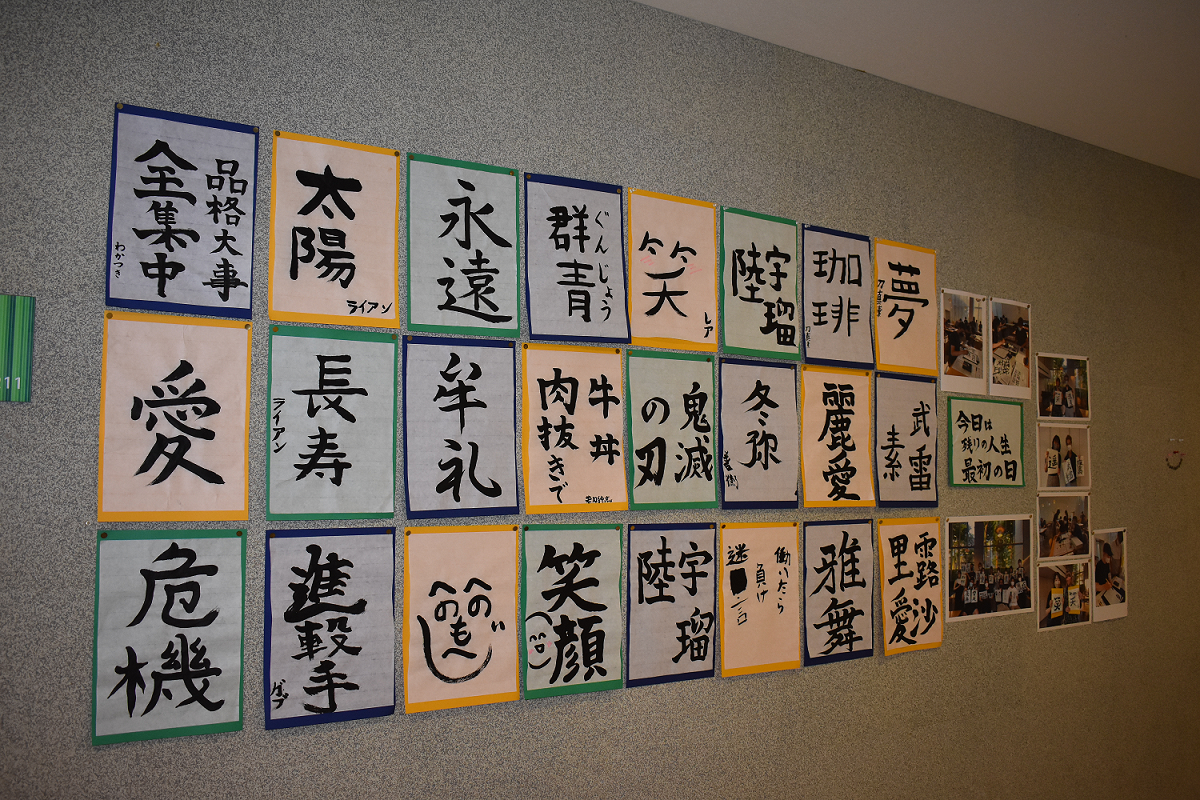 品格大事
全集中
わかつき
太陽
ライアン
永遠
群青
ぐんじょう
笑
レア
宇瑠
陸
珈琲
夢
愛
長寿
ライアン
牟礼
牛丼
肉抜きで
鬼滅
の刃
冬弥
麗愛
武雷
素
今日は
残りの人生
最初の日
危機
進撃手
ゲップ
へのへの
もへじ
笑顔
宇瑠
陸
働いたら
負け
迷言
雅舞
露沙
里愛
211